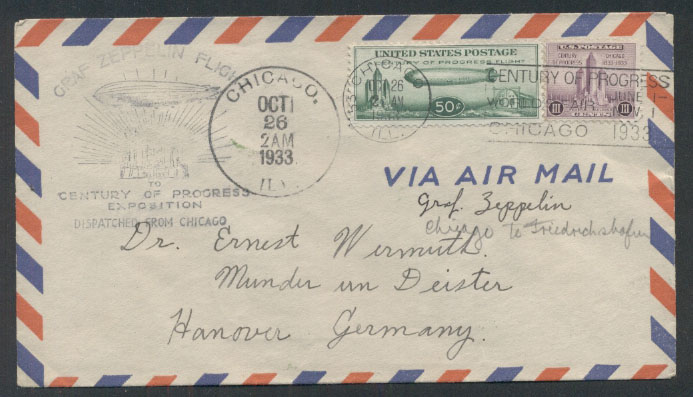 GRAF ZEPPELIN FLIGHT
TO
CENTURY OF PROGRESS
EXPOSITION
DISPATCHED FROM CHICAGO
CHICAGO.
OCT
26
2AM
1933
ILL.
UNITED STATES POSTAGE
A CENTURY OF PROGRESS FLIGHT
50¢
CHICAGO
26
1933
U.S. POSTAGE
CENTURY OF PROGRESS
CHICAGO
1833-1933
III
CENTS
III
CENTURY OF PROGRESS
WORLD'S FAIR
JUNE 1-
NOV. 1
CHICAGO 1933
VIA AIR MAIL
Graf. Zeppelin
Chicago to Friedrichshafen
Dr. Ernest Wermuth.
Munder un Deister
Hanover Germany.